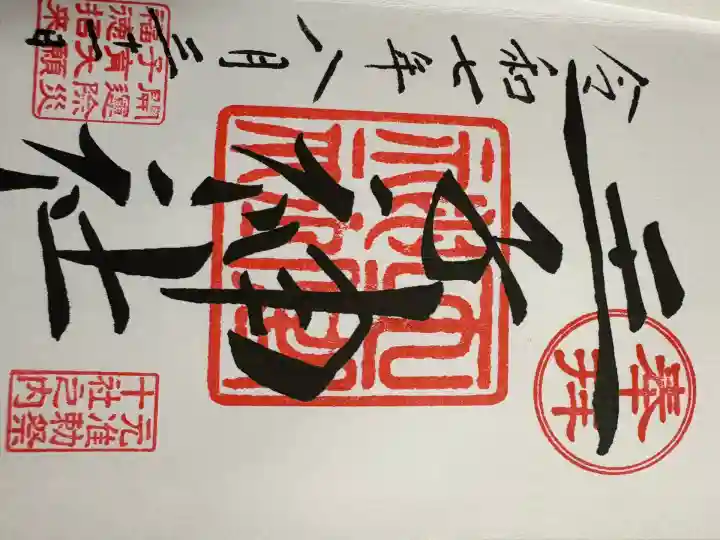 奉拝
王子神社
令和七年八月
元准勅祭
十社之内
開運除災
子育大願
福徳招来